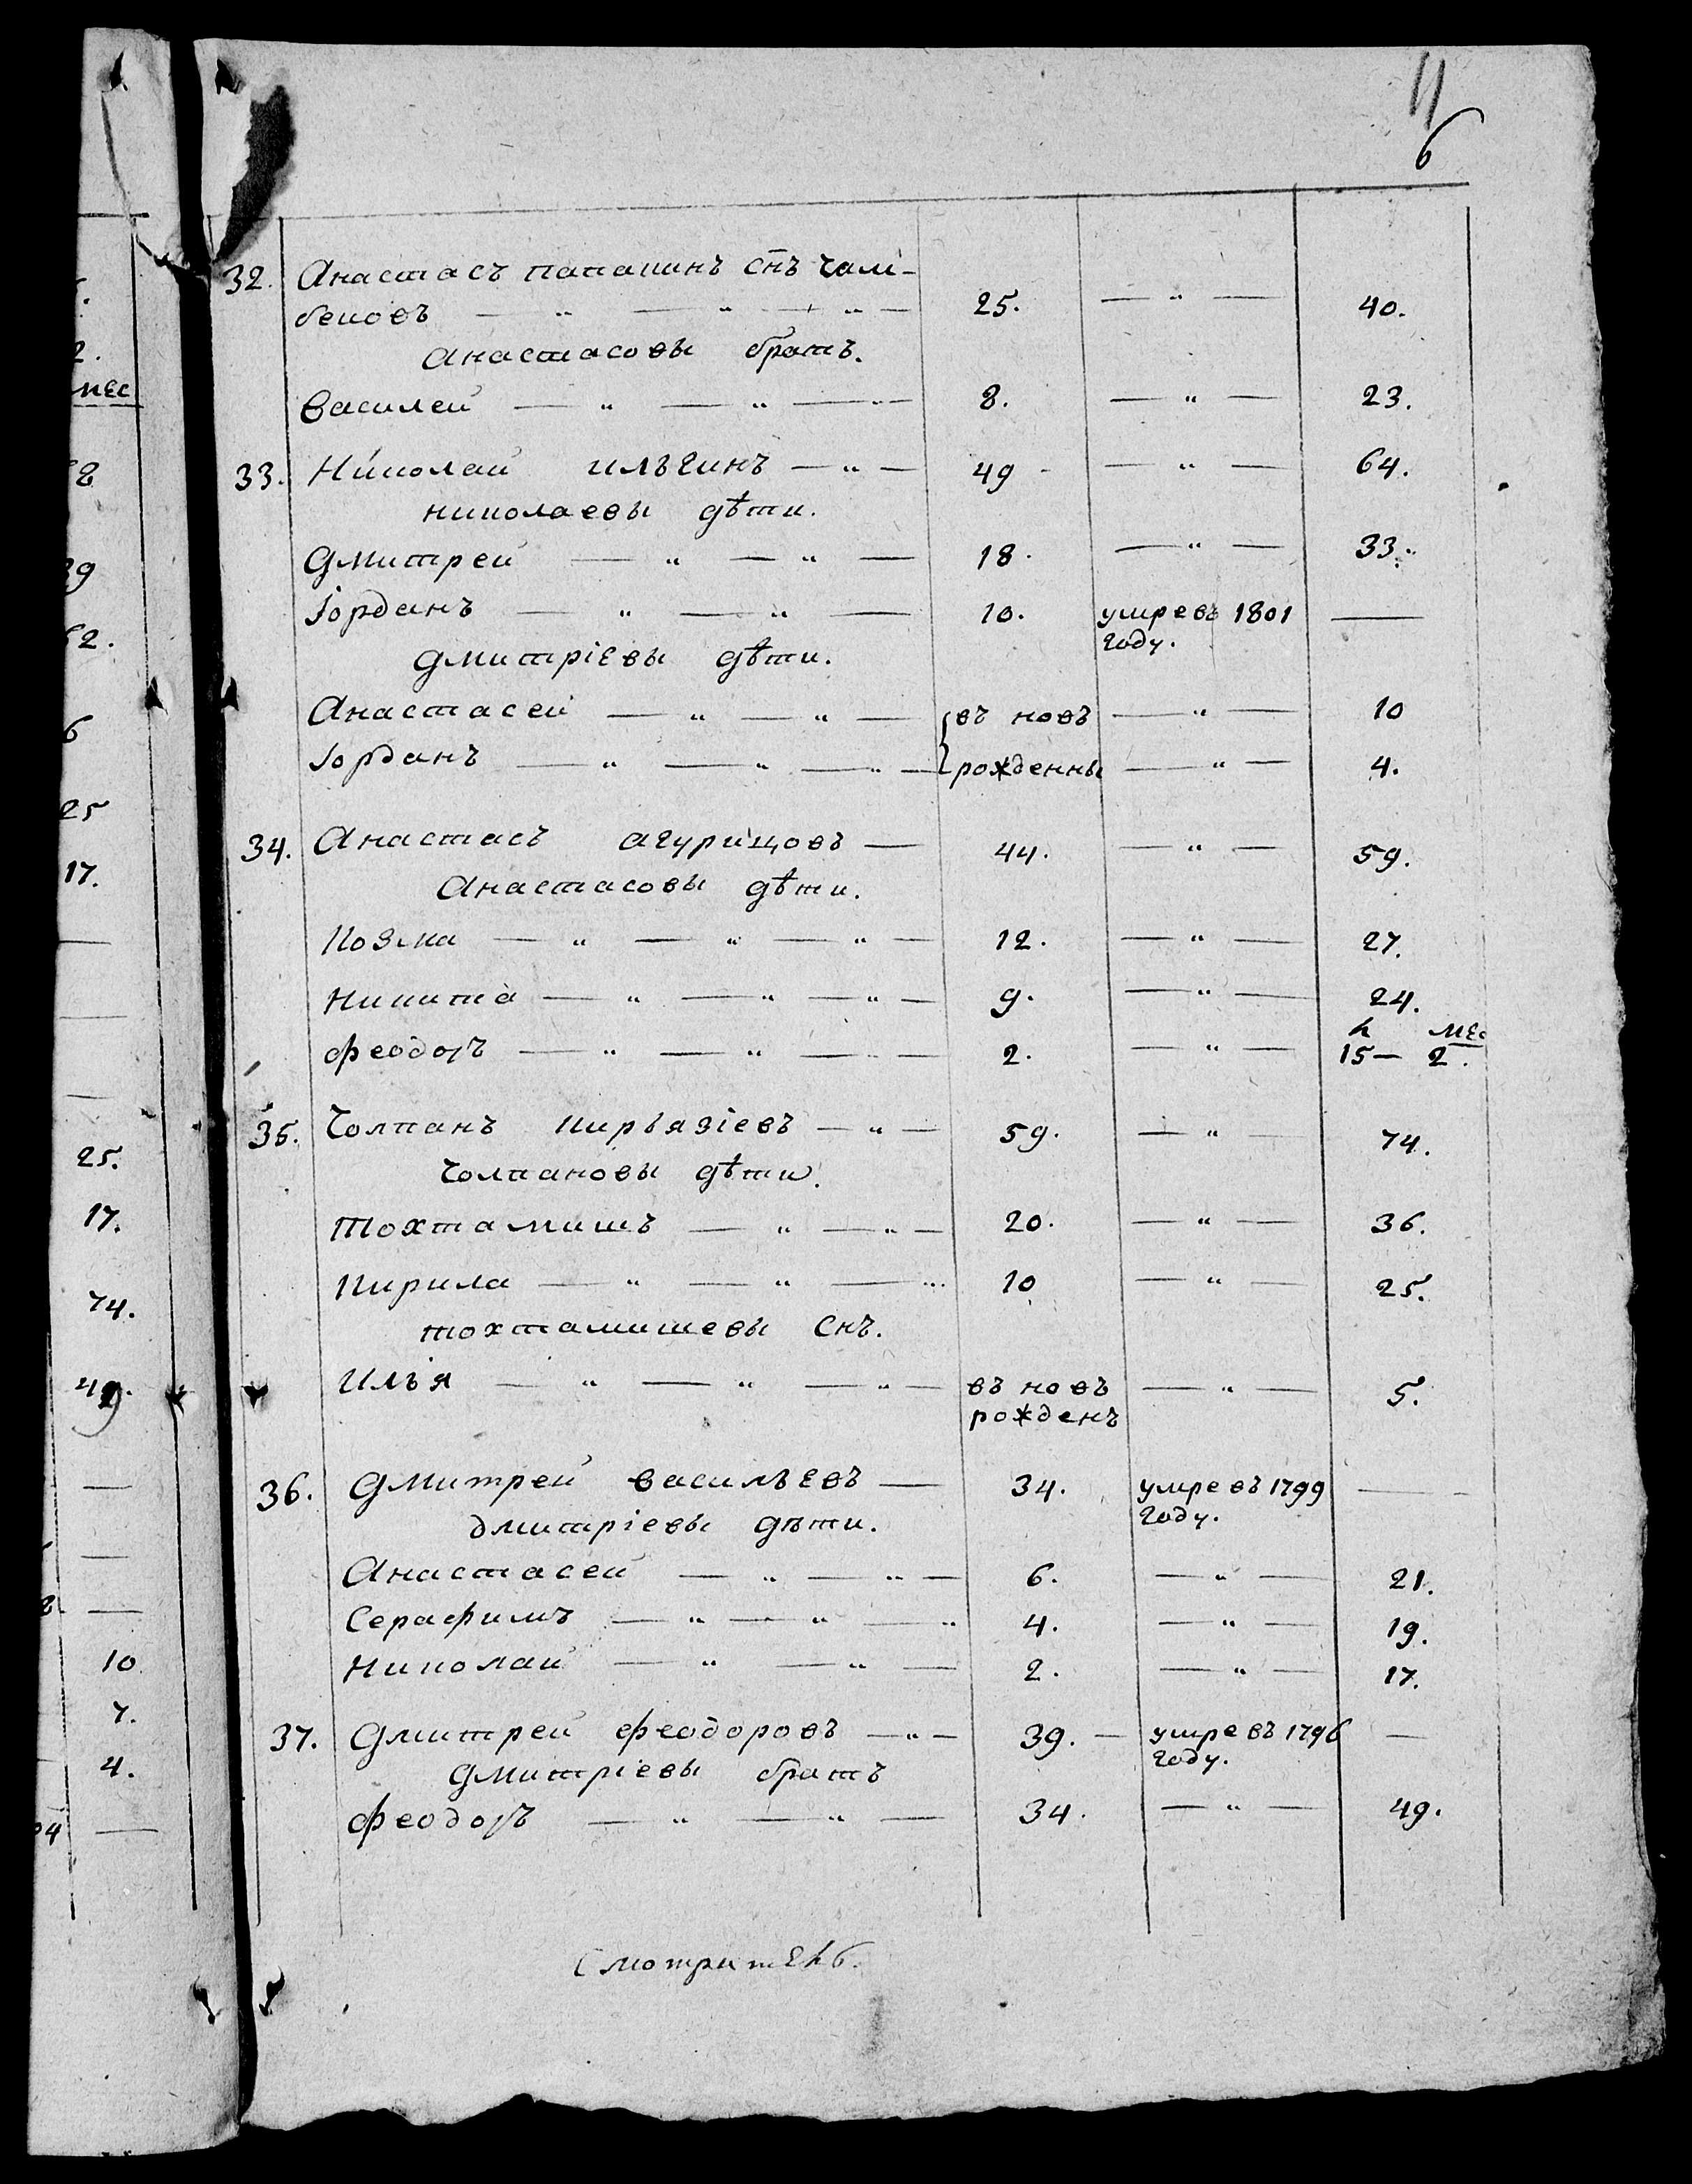 11
6
32. Анастасъ папакинъ сн҃ъ чали-
бековъ — „ — „ — „ — 25. — „ — 40.
анастасовы братъ.
василей — „ — „ — „ — 8. — „ — 23.
33. Николай ильгинъ — „ — 49 — „ — 64.
николаевы дѣти.
Дмитрей — „ — „ — 18. — „ — 33.
Іорданъ — „ — „ — 10. умре въ 1801 —
году.
дмитріевы дѣти.
Анастасей — „ — „ — въ новъ — „ — 10
Іорданъ — „ — „ — „ — рожденны — „ — 4.
34. Анастасъ агурицовъ — 44. — „ — 59.
Анастасовы дѣти.
Козма — „ — „ — „ — 12. — „ — 27.
Никита — „ — „ — „ — 9. — „ — 24.
мес
феодоръ — „ — „ — „ — 2. — „ — 15 — 2.
35. Чолпанъ кирьязіевъ — „ — 59. — „ — 74.
чолпановы дѣти.
Тохтамишъ — „ — „ — 20. — „ — 36.
Кирила — „ — „ — „ 10 — „ — 25.
тохтамишевы снъ.
Илья — „ — „ — „ — въ новъ — „ — 5.
рожденъ
36. Дмитрей васильевъ — 34. умре въ 1799 —
году.
дмитріевы дѣти.
Анастасей — „ — „ — 6. — „ — 21.
Серафимъ — „ — „ — „ 4. — „ — 19.
Николай — „ — „ — 2. — „ — 17.
37. Дмитрей феодоровъ — „ — 39. — умре въ 1796 —
году.
Дмитріевы братъ
феодоръ — „ — „ — 34. — „ — 49.
Смотри
мес
25
17.
25.
17.
74.
49.
10
7.
4.